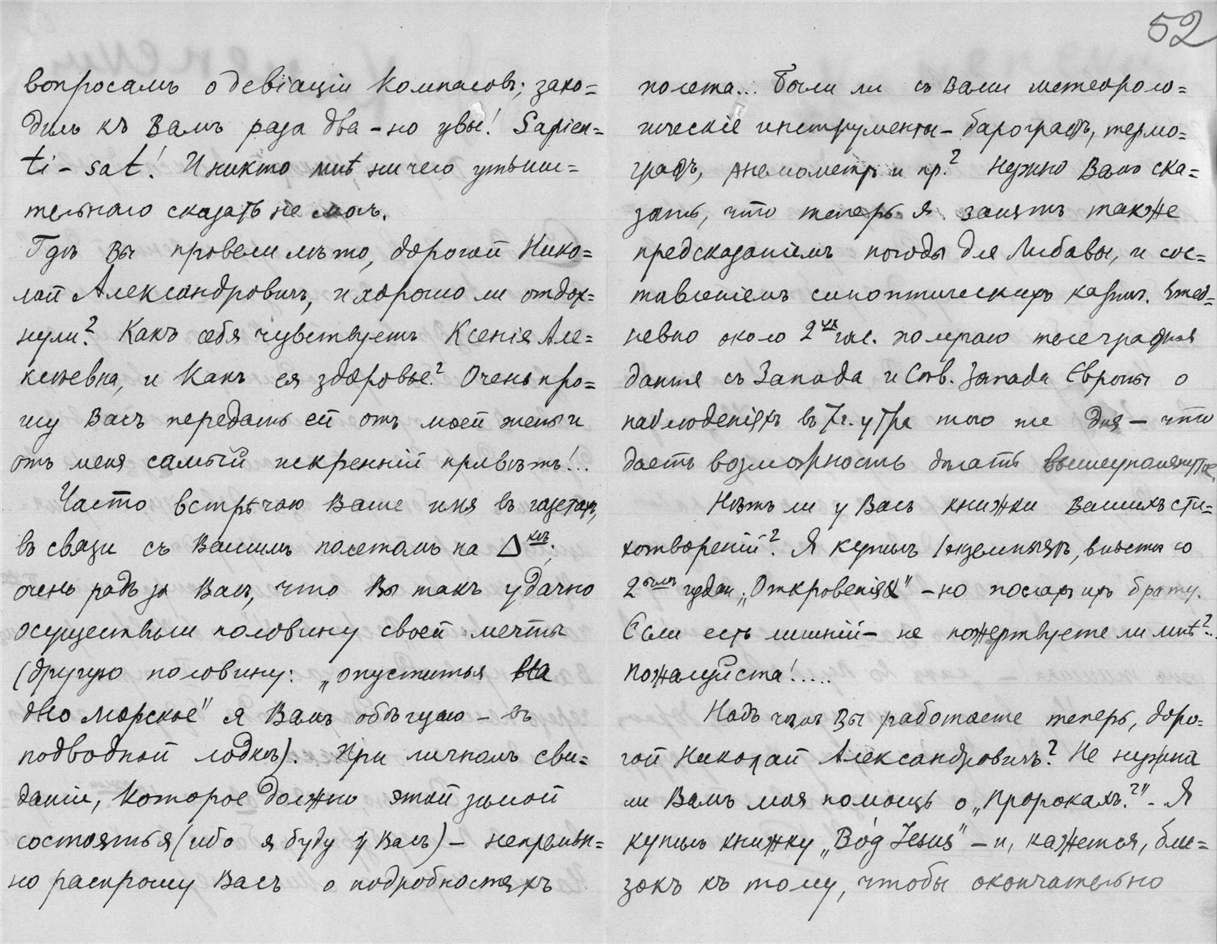 вопросамъ о девіаціи компасовъ; захо=
дилъ къ Вамъ раза два – но увы! Sapien=
ti – sat! И никто мнѣ ничего утѣши=
тельнаго сказать не могъ.
Гдѣ Вы провели лѣто, дорогой Нико=
лай Александровичъ, и хорошо ли отдох=
нули? Какъ себя чувствуетъ Ксенія Але=
ксѣевна, и какъ ея здоровье? Очень про=
шу Васъ передать ей отъ моей жены и
отъ меня самый искренній привѣтъ!..
Часто встрѣчаю Ваше имя въ газетахъ,
въ связи съ Вашимъ полетомъ на Δ
очень радъ за Васъ, что Вы такъ удачно
осуществили половину своей мечты
(другую половину: „опуститься на
дно морское" я Вамъ обѣщаю – въ
подводной лодкѣ). При личномъ сви=
даніи, которое должно этой зимой
состояться (ибо я буду у Васъ) – непремѣн=
но распрошу Васъ о подробностяхъ
52
полета... Были ли съ Вами метеороло=
гическіе инструменты – барографъ, термо=
графъ, анемометръ и пр.? Нужно Вамъ ска=
зать, что теперь я занятъ также
предсказаніемъ погоды для Либавы, и сос=
тавленіемъ синоптическихъ картъ. Ежед=
невно около 2хъ час. получаю телеграфныя
данныя съ Запада и Сѣв. Запада Европы о
наблюденіяхъ въ 7 ч. утра того же дня – что
даетъ возможность дѣлать вышеупомянутое.
Нѣтъ ли у Васъ книжки Вашихъ сти=
хотвореній? Я купилъ 1 экземпляръ, вмѣстѣ со
2мъ „Откровенія" – но послалъ ихъ брату.
Если есть лишній – не пожертвуете ли мнѣ?..
Пожалуйста!....
Надъ чѣмъ Вы работаете теперь, доро=
гой Николай Александровичъ? Не нужна
ли Вамъ моя помощь о „Пророкахъ?" – Я
купилъ книжку „Jesus" – и, кажется, бли=
зокъ къ тому, чтобы окончательно